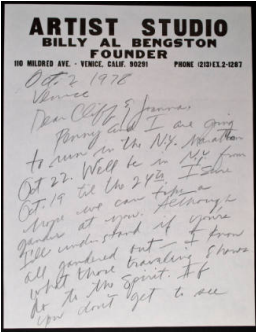 ARTIST STUDIO
BILLY AL BENGSTON
FOUNDER
110 MILDRED AVE. - VENICE, CALIF. 90291 PHONE (213) EX.2-1287
Oct. 2 1978
Venice
Dear Cliff &
Penny and I are going
to run in the N.Y. Marathon
Oct 22. We'll be in N.Y. from
Oct. 19 til the 24th. I sure
hope we can take a
gander at you. Although
I'll understand if you're
all gandered out — I know
what those traveling shows
do to the spirit. If
you don't get to see